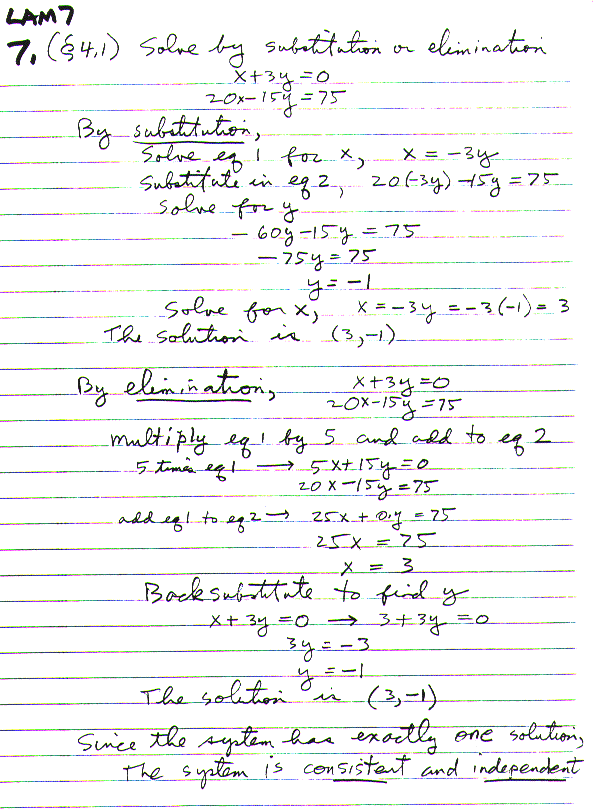 LAM7
7. (§4.1) Solve by substitution or elimination
x+3y=0
20x-15y=75
By substitution,
Solve eq 1 for x, x = -3y
Substitute in eq 2, 20(-3y)-15y=75
Solve for y
-60y-15y = 75
-75y = 75
y = -1
Solve for x, x = -3y = -3(-1) = 3
The solution is (3,-1)
By elimination, x+3y=0
20x-15y=75
multiply eq 1 by 5 and add to eq 2
5 times eq 1 → 5x+15y=0
20x-15y=75
add eq 1 to eq 2 → 25x + 0·y = 75
25x = 75
x = 3
Back substitute to find y
x+3y=0 → 3+3y=0
3y = -3
y = -1
The solution is (3,-1)
Since the system has exactly one solution,
the system is consistent and independent